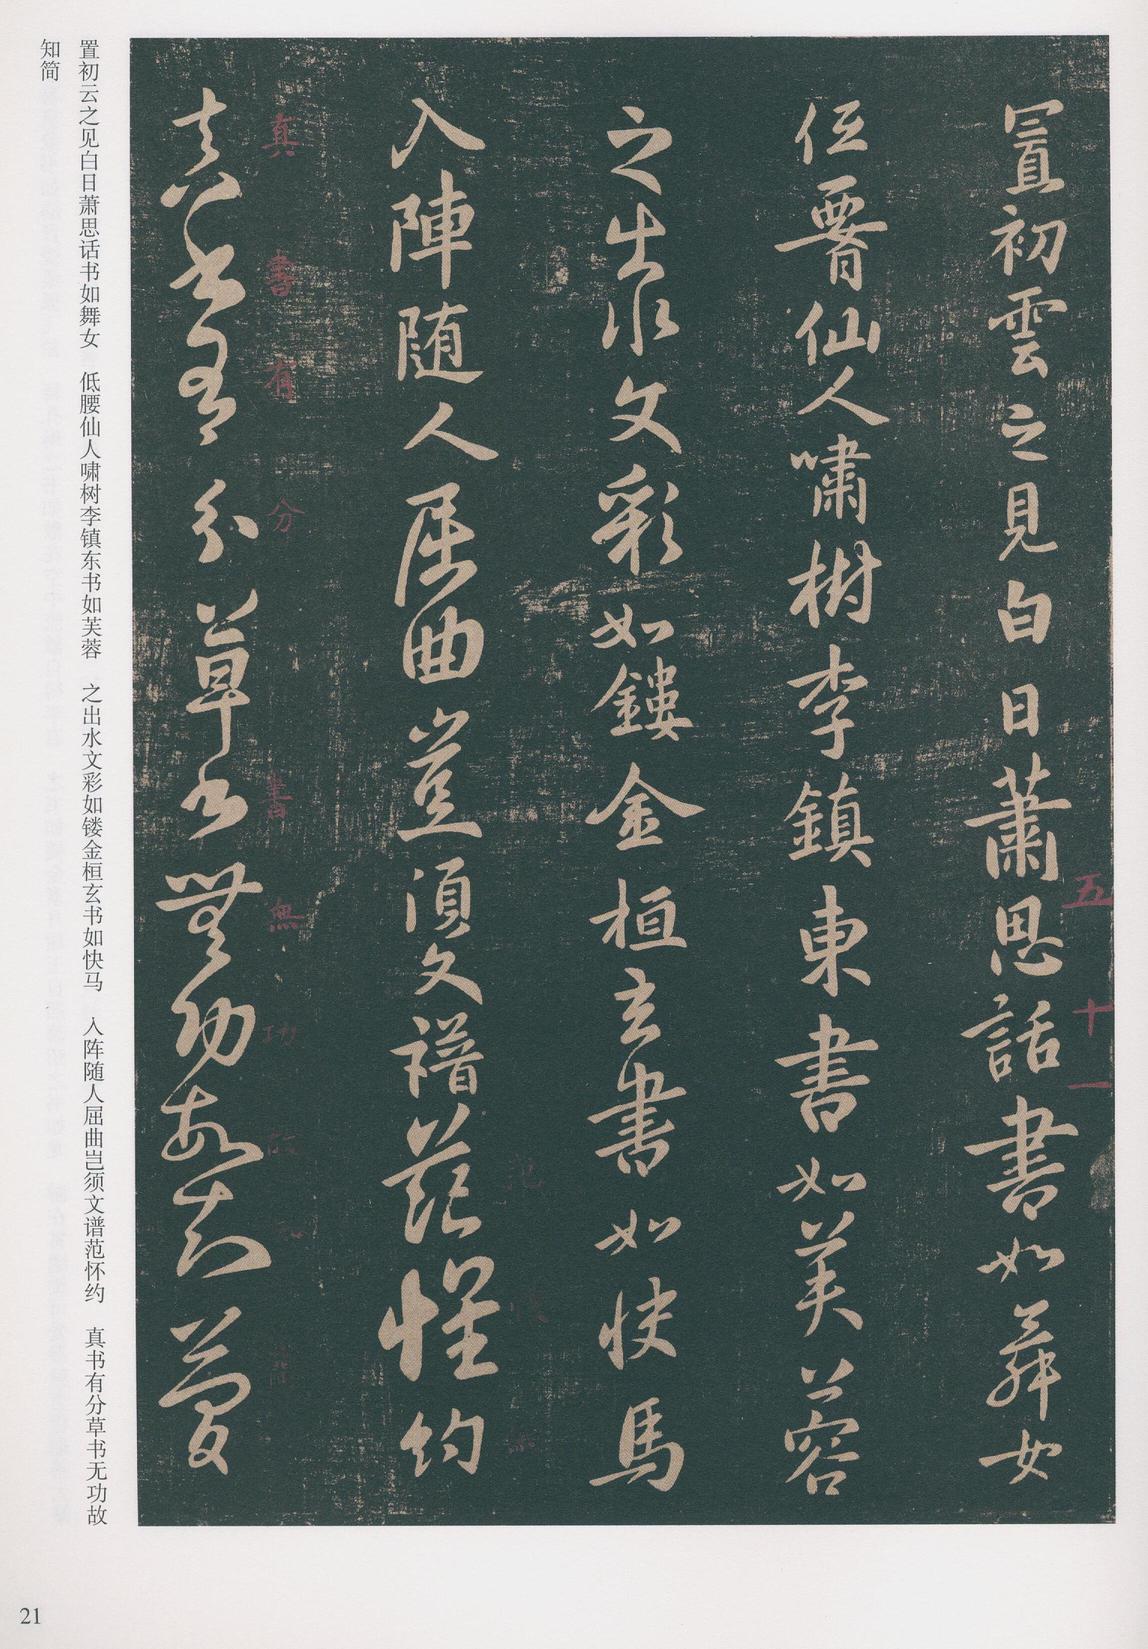 置初雲之見白日蕭思話書如舞女
低腰仙人嘯樹李鎮東書如芙蓉
之出水文彩如鏤金桓玄書如快馬
入陣随人屈曲豈須文譜范懷約
真書有分草書無功故知簡
五十一
真書有分書無功故
置初云之见白日萧思话书如舞女 低腰仙人啸树李镇东书如芙蓉 之出水文彩如镂金桓玄书如快马 入阵随人屈曲岂须文谱范怀约 真书有分草书无功故
知简
21